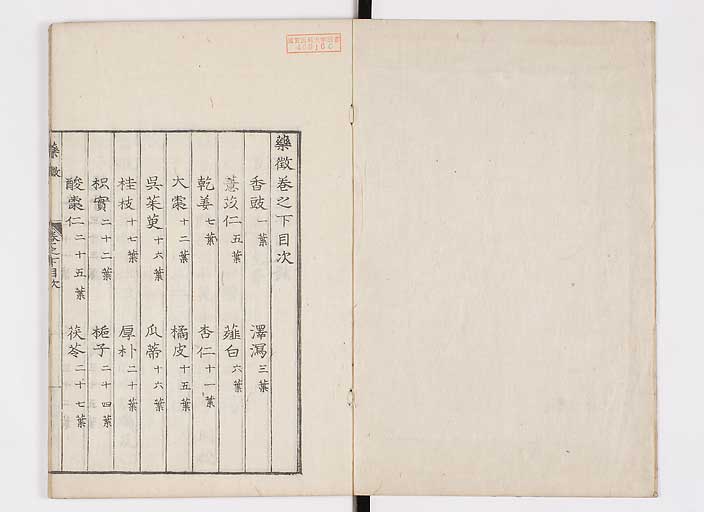 藥徵卷之下目次
香豉 一葉 澤瀉 三葉
薏苡仁 五葉 薤白 六葉
乾姜 七葉 杏仁 十一葉
大棗 十二葉 橘皮 十五葉
吳茱萸 十六葉 瓜蒂 十六葉
桂枝 十七葉 厚朴 二十葉
枳實 二十二葉 梔子 二十四葉
酸棗仁 二十五葉 茯苓 二十七葉
藥徵 卷之下目次